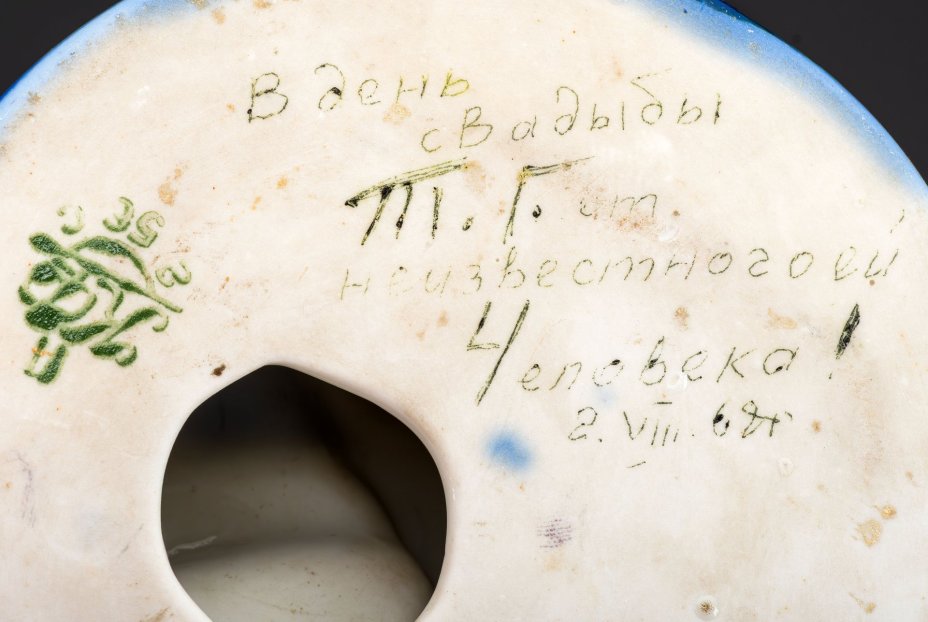 В день
свадьбы
Т. Г. от
неизвестного ей
Человека!
2. VIII. 68г